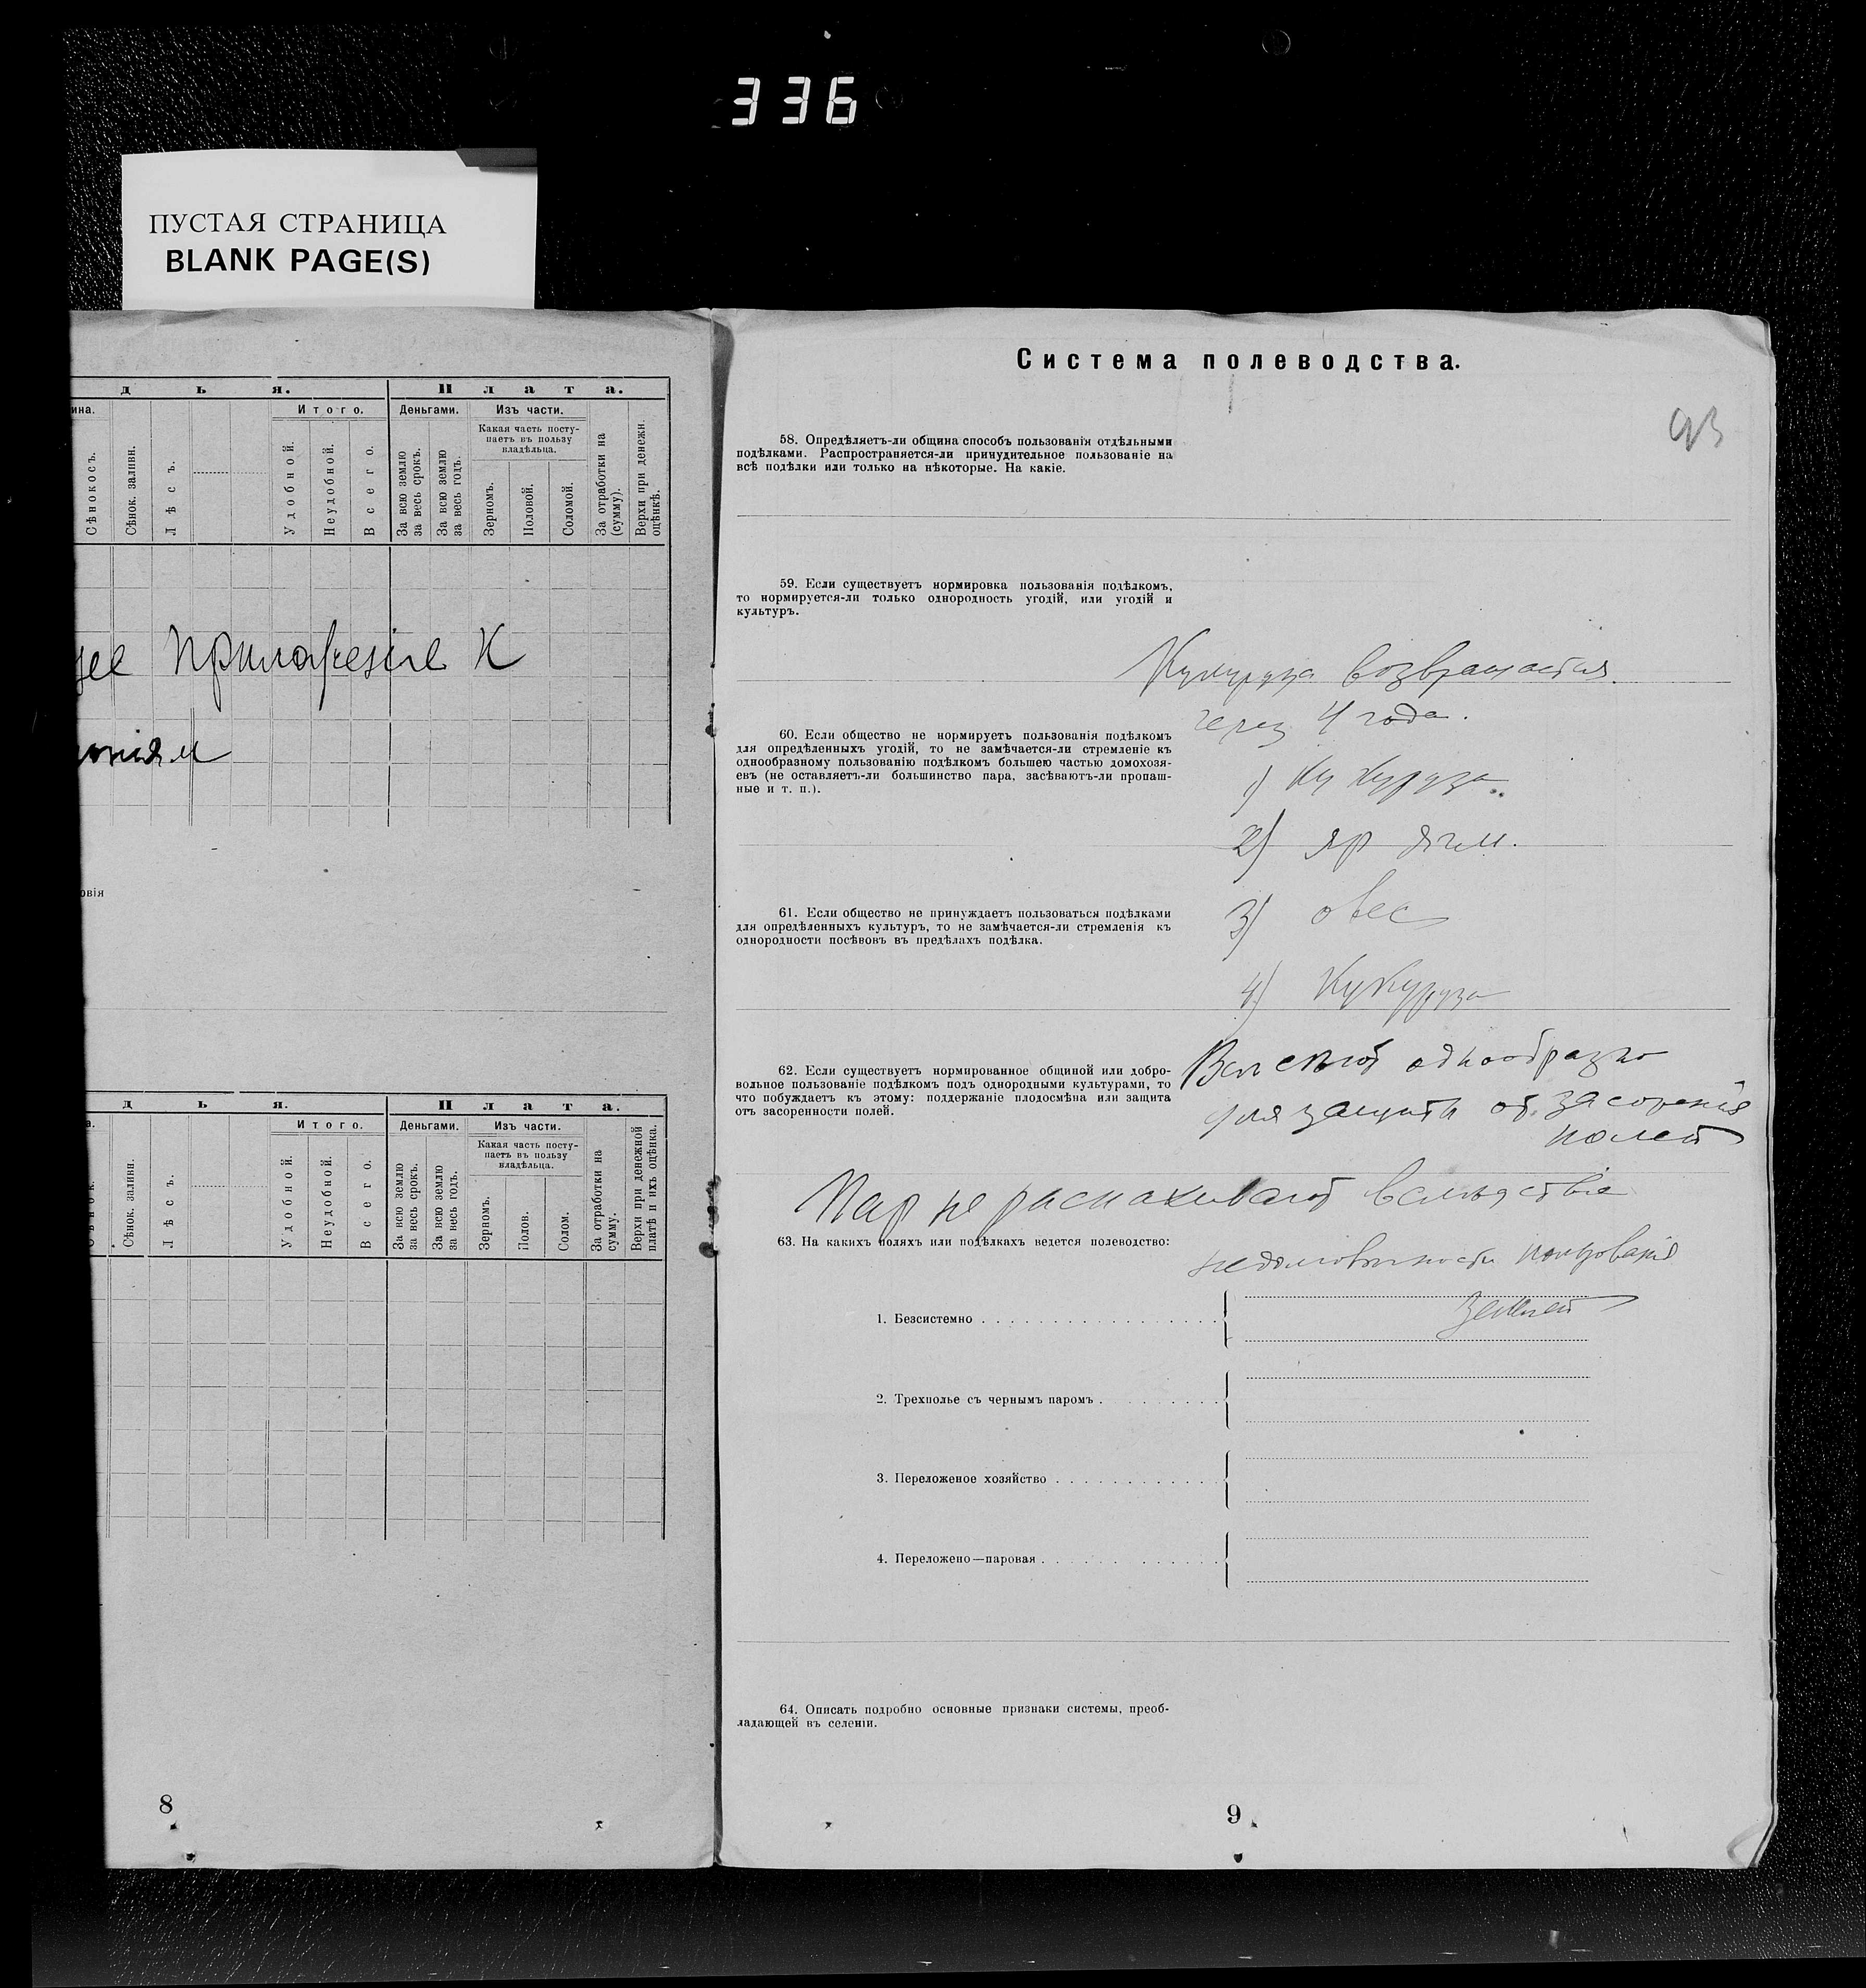 336
ПУСТАЯ СТРАНИЦА
BLANK PAGE(S)
д ь я.
П л а т а.
ина.
Итого.
Деньгами.
Изъ части.
Какая часть посту-
паетъ въ пользу
владѣльца.
Сѣнокосъ.
Сѣнок. заливн.
Лѣсъ.
Удобной.
Неудобной.
Всего.
За всю землю
за весь срокъ.
За всю землю
за весь годъ.
Зерномъ.
Половой.
Соломой.
За отработки на
(сумму).
Верхи при денежн.
оцѣнкѣ.
Приложеніе К
овія
д ь я.
П л а т а.
а.
Итого.
Деньгами.
Изъ части.
Какая часть посту-
паетъ въ пользу
владѣльца.
Сѣнок. заливн.
Лѣсъ.
Удобной.
Неудобной.
Всего.
За всю землю
за весь срокъ.
За всю землю
за весь годъ.
Зерномъ.
Полов.
Солом.
За отработки на
сумму.
Верхи при денежной
платѣ и ихъ оцѣнка.
8
Система полеводства.
93
58. Опредѣляетъ-ли община способъ пользованія отдѣльными
подѣлками. Распространяется-ли принудительное пользованіе на
всѣ подѣлки или только на нѣкоторые. На какіе.
59. Если существуетъ нормировка пользованія подѣлкомъ,
то нормируется-ли только однородность угодій, или угодій и
культуръ.
Кукуруза возвращается
через 4 года.
60. Если общество не нормируетъ пользованія подѣлкомъ
для опредѣленныхъ угодій, то не замѣчается-ли стремленіе къ
однообразному пользованію подѣлкомъ большею частью домохозя-
евъ (не оставляетъ-ли большинство пара, засѣваютъ-ли пропаш-
ные и т. п.).
1) Кукуруза
2) яр ячм.
61. Если общество не принуждаетъ пользоваться подѣлками
для опредѣленныхъ культуръ, то не замѣчается-ли стремленія къ
однородности посѣвовъ въ предѣлахъ подѣлка.
3) овес
4) Кукуруза
62. Если существуетъ нормированное общиной или добро-
вольное пользованіе подѣлкомъ подъ однородными культурами, то
что побуждаетъ къ этому: поддержаніе плодосмѣна или защита
отъ засоренности полей.
однообразно
для защиты от засоренія
полей
Пар не распахивают вслѣдствіе
недолговѣчности пользованія
землей
63. На какихъ поляхъ или подѣлкахъ ведется полеводство:
1. Безсистемно
2. Трехполье съ чернымъ паромъ
3. Переложеное хозяйство
4. Переложено—паровая
64. Описать подробно основные признаки системы, преоб-
ладающей въ селеніи.
9